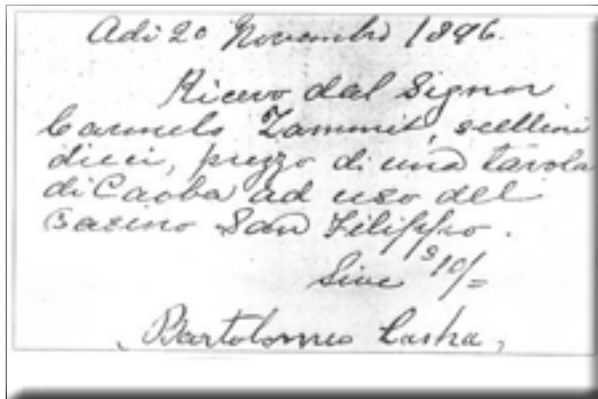 Adi 20 Novembro 1896.
Ricevo dal Signor
Carmelo Zammit, scellini
dieci, prezzo di una tavola
di Caoba ad uso del
Casino San Filippo.
Sive s10/=
Bartolomeo